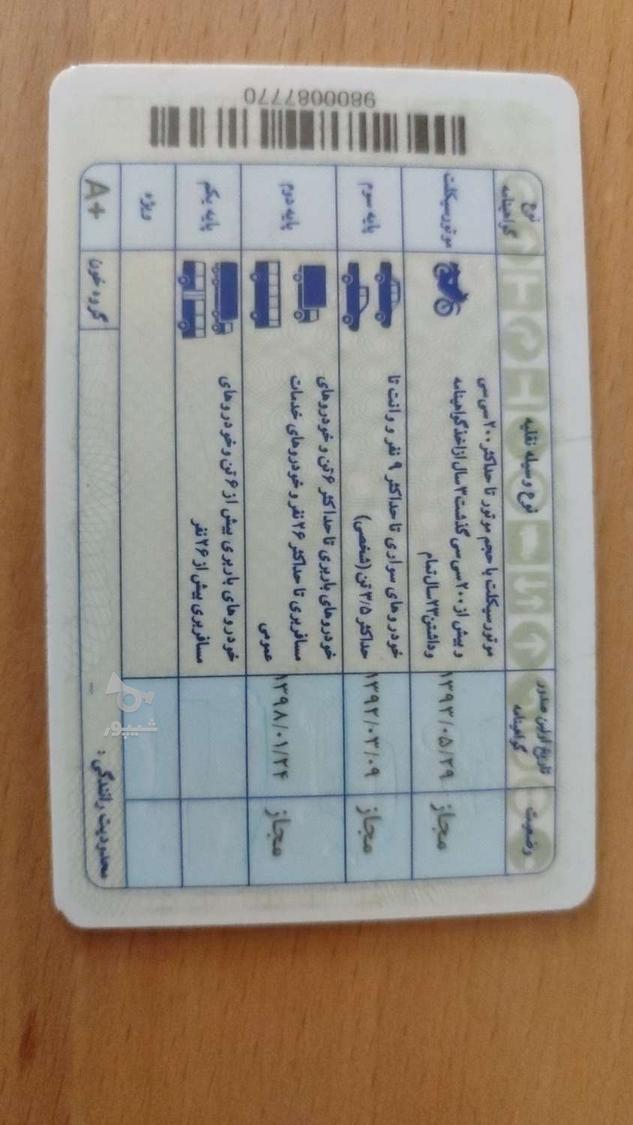 9800087770
نوع گواهینامه
نوع وسیله نقلیه
تاریخ اولین صدور گواهینامه
وضعیت
موتورسیکلت
موتورسیکلت با حجم موتور تا حداکثر ۲۰۰ سی سی
و بیش از ۲۰۰ سی سی گذشت ۳ سال از اخذ گواهینامه
و داشتن ۲۳ سال تمام
۱۳۹۳/۰۵/۲۹
مجاز
پایه سوم
خودروهای سواری تا حداکثر ۹ نفر و وانت تا
حداکثر ۳/۵ تن (شخصی)
۱۳۹۲/۰۳/۰۹
مجاز
پایه دوم
خودروهای باربری تا حداکثر ۶ تن و خودروهای
مسافربری تا حداکثر ۲۶ نفر و خودروهای خدمات
عمومی
۱۳۹۸/۰۱/۲۴
مجاز
پایه یکم
خودروهای باربری بیش از ۶ تن و خودروهای
مسافربری بیش از ۲۶ نفر
ویژه
A+
گروه خون
محدودیت رانندگی :
شیپور